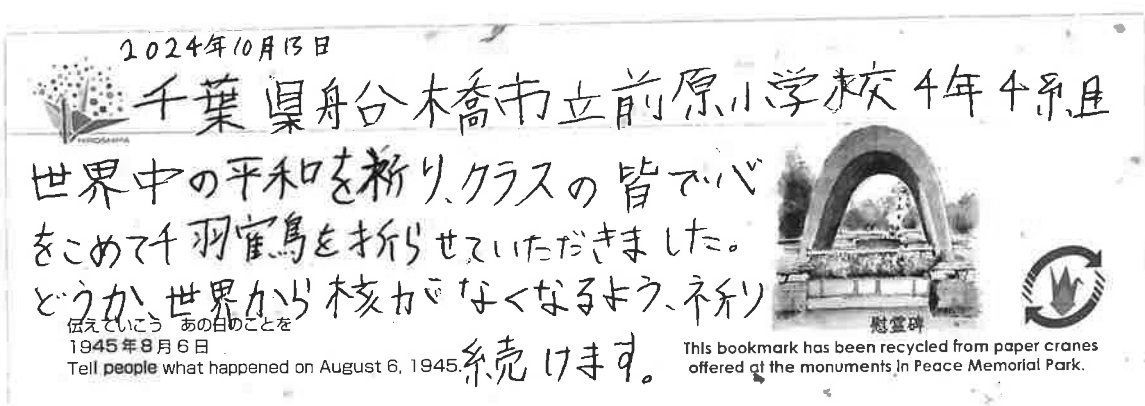 2024年10月13日
千葉県船橋市立前原小学校4年4組
世界中の平和を祈り、クラスの皆で心
をこめて千羽鶴を折らせていただきました。
どうか、世界から核がなくなるよう、祈り
続けます。
HIROSHIMA
伝えていこう あの日のことを
1945年8月6日
Tell people what happened on August 6, 1945.
慰霊碑
This bookmark has been recycled from paper cranes
offered at the monuments in Peace Memorial Park.